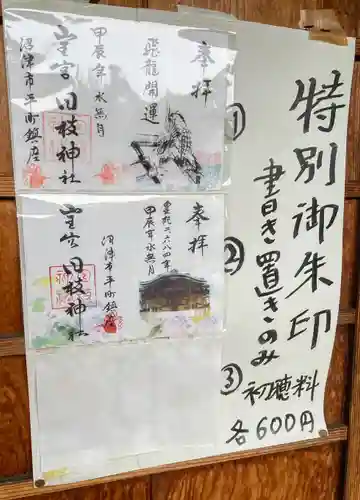 特別御朱印
書き置きのみ
初聴料
各600円
①
奉拝
飛龍開運
甲辰年水無月
沼津市平町鎮座
日枝神社
②
奉拝
皇紀二六八四年
甲辰年水無月
沼津市平町鎮座
日枝神社
③